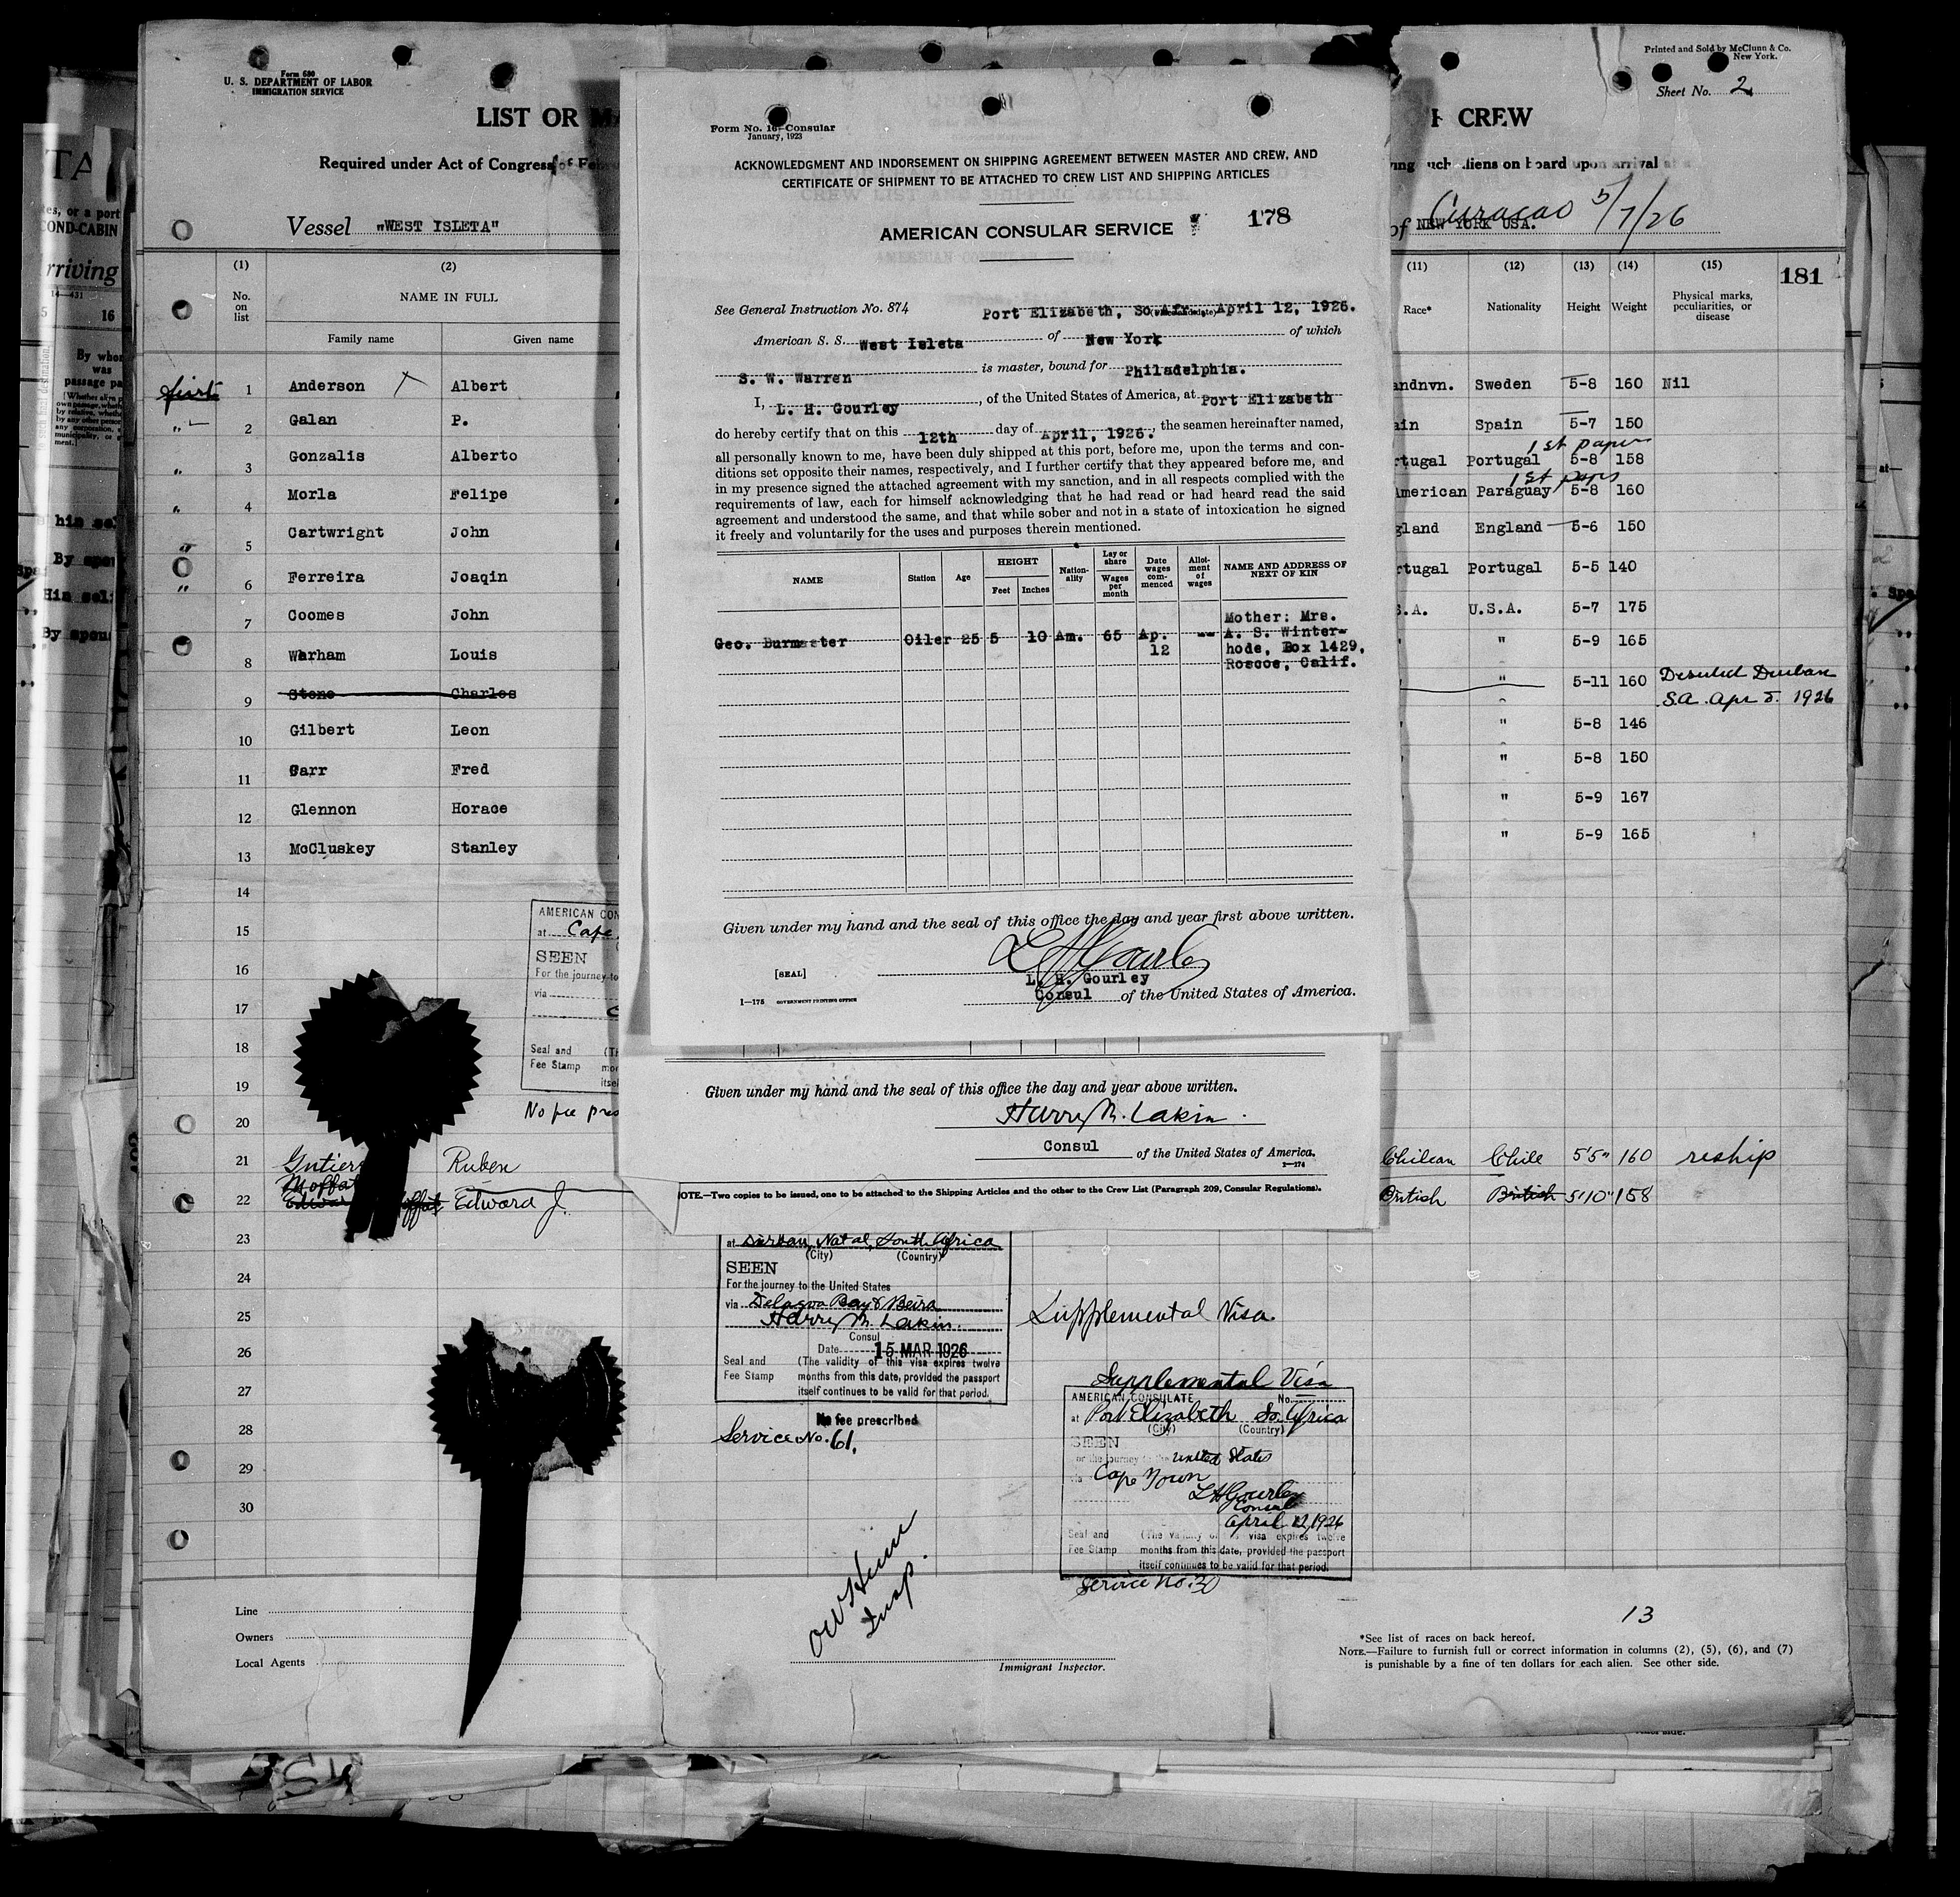 Form 680
U. S. DEPARTMENT OF LABOR
IMMIGRATION SERVICE
Printed and Sold by McClunn & Co.
New York.
Sheet No. 2
LIST OR
CREW
Required under Act of Congress of
aliens on board upon arrival at a
Vessel "WEST ISLETA"
of NEW YORK USA. Curacao 5/7/26
181
(1) (2)
No. on list
NAME IN FULL
Family name Given name
(11) (12) (13) (14) (15)
Race* Nationality Height Weight Physical marks, peculiarities, or disease
first 1 Anderson Albert
" 2 Galan P.
" 3 Gonzalis Alberto
" 4 Morla Felipe
" 5 Cartwright John
" 6 Ferreira Joaqin
7 Coomes John
8 Warham Louis
9 Stone Charles
10 Gilbert Leon
11 Carr Fred
12 Glennon Horace
13 McCluskey Stanley
14
15
16
17
18
19
20
21 Ruben
22 Moffat Edward J.
23
24
25
26
27
28
29
30
andnvn. Sweden 5-8 160 Nil
ain Spain 5-7 150
1st papers
rtugal Portugal 5-8 158
1st paps
American Paraguay 5-8 160
gland England 5-6 150
rtugal Portugal 5-5 140
S.A. U.S.A. 5-7 175
" 5-9 165
" 5-11 160 Deserted Durban
S.A. Apr 5. 1926
" 5-8 146
" 5-8 150
" 5-9 167
" 5-9 165
Chilean Chile 5'5" 160 reship
British British 5'10" 158
Form No. 16—Consular
January, 1923
ACKNOWLEDGMENT AND INDORSEMENT ON SHIPPING AGREEMENT BETWEEN MASTER AND CREW, AND
CERTIFICATE OF SHIPMENT TO BE ATTACHED TO CREW LIST AND SHIPPING ARTICLES
AMERICAN CONSULAR SERVICE 178
See General Instruction No. 874 Port Elizabeth, So. Afr., April 12, 1926.
American S. S. West Isleta of New York of which
S. W. Warren is master, bound for Philadelphia.
I, L. H. Gourley, of the United States of America, at Port Elizabeth
do hereby certify that on this 12th day of April, 1926., the seamen hereinafter named,
all personally known to me, have been duly shipped at this port, before me, upon the terms and con-
ditions set opposite their names, respectively, and I further certify that they appeared before me, and
in my presence signed the attached agreement with my sanction, and in all respects complied with the
requirements of law, each for himself acknowledging that he had read or had heard read the said
agreement and understood the same, and that while sober and not in a state of intoxication he signed
it freely and voluntarily for the uses and purposes therein mentioned.
NAME Station Age HEIGHT Feet Inches Nation-ality Lay or share Wages per month Date wages com-menced Allot-ment of wages NAME AND ADDRESS OF NEXT OF KIN
Geo. Burmaster Oiler 25 5 10 Am. 65 Ap. 12 -- Mother: Mrs.
A. S. Winter-
hode, Box 1429,
Roscoe, Calif.
Given under my hand and the seal of this office the day and year first above written.
L H Gourley
[SEAL]
L. H. Gourley
1—175 GOVERNMENT PRINTING OFFICE
Consul of the United States of America.
Given under my hand and the seal of this office the day and year above written.
Harry M. Lakin.
Consul of the United States of America.
1—174
NOTE.—Two copies to be issued, one to be attached to the Shipping Articles and the other to the Crew List (Paragraph 209, Consular Regulations).
AMERICAN CON
at Cape
SEEN
For the journey to
via
Seal and
Fee Stamp
No fee pres
at Durban, Natal, South Africa
(City) (Country)
SEEN
For the journey to the United States
via Delagoa Bay & Beira
Harry M. Lakin.
Consul
Date 15 MAR 1926
Seal and (The validity of this visa expires twelve
Fee Stamp months from this date, provided the passport
itself continues to be valid for that period.
No fee prescribed
Service No. 61.
Supplemental Visa.
Supplemental Visa
AMERICAN CONSULATE No.
at Port Elizabeth So. Africa
(City) (Country)
SEEN
for the journey to the United States
via Cape Town
L H Gourley
Consul
April 12, 1926
Seal and (The validity of this visa expires twelve
Fee Stamp months from this date, provided the passport
itself continues to be valid for that period.
Service No. 30
Insp.
Immigrant Inspector.
Line
Owners
Local Agents
13
*See list of races on back hereof.
NOTE.—Failure to furnish full or correct information in columns (2), (5), (6), and (7)
is punishable by a fine of ten dollars for each alien. See other side.